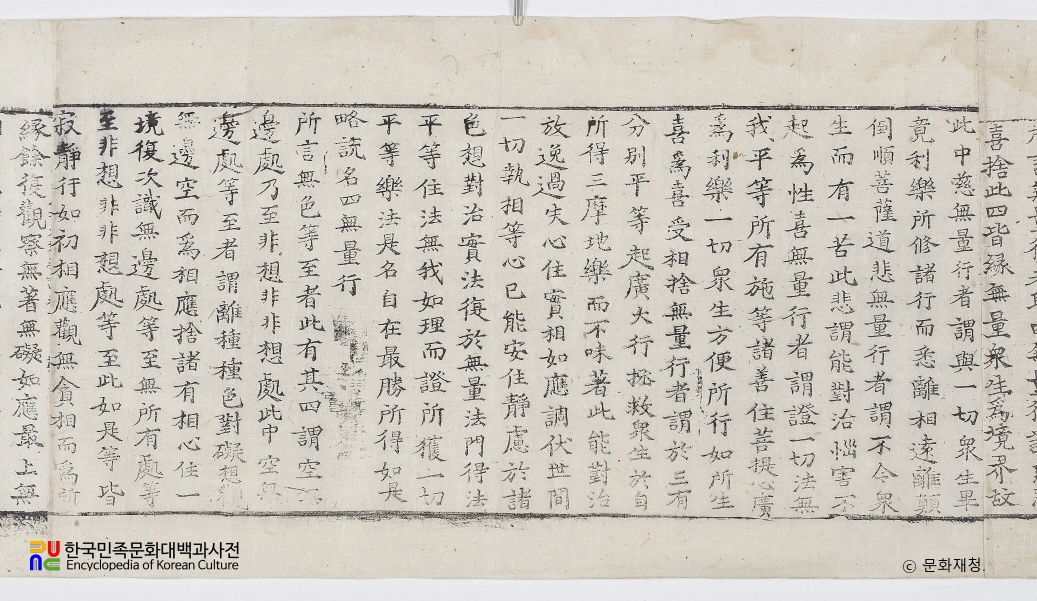 喜捨此四皆緣無量衆生爲境界故
此中慈無量行者謂與一切衆生畢
竟利樂所修諸行而悉離相遠離顚
倒順菩薩道悲無量行者謂不令衆
生而有一苦此悲謂能對治惱害不
起爲性喜無量行者謂證一切法無
我平等所有施等諸善住菩提心廣
爲利樂一切衆生方便所行如所生
喜爲喜受相捨無量行者謂於三有
分別平等起廣大行拯救衆生於自
所得三摩地樂而不味著此能對治
放逸過失心住實相如應調伏世間
一切執相等心已能安住靜慮於諸
色想對治實法復於無量法門得法
平等住法無我如理而證所獲一切
平等樂法是名自在最勝所得如是
略說名四無量行
所言無色等至者此有其四謂空無
邊處乃至非想非非想處此中空無
邊處等至者謂離種種色對礙想觀
無邊空而爲相應捨諸有相心住一
境復次識無邊處等至無所有處等
至非想非非想處等至此如是等皆
寂靜行如初相應觀無貪相而爲所
緣餘復觀察無著無礙如應最上無
한국민족문화대백과사전
Encyclopedia of Korean Culture
ⓒ 문화재청.